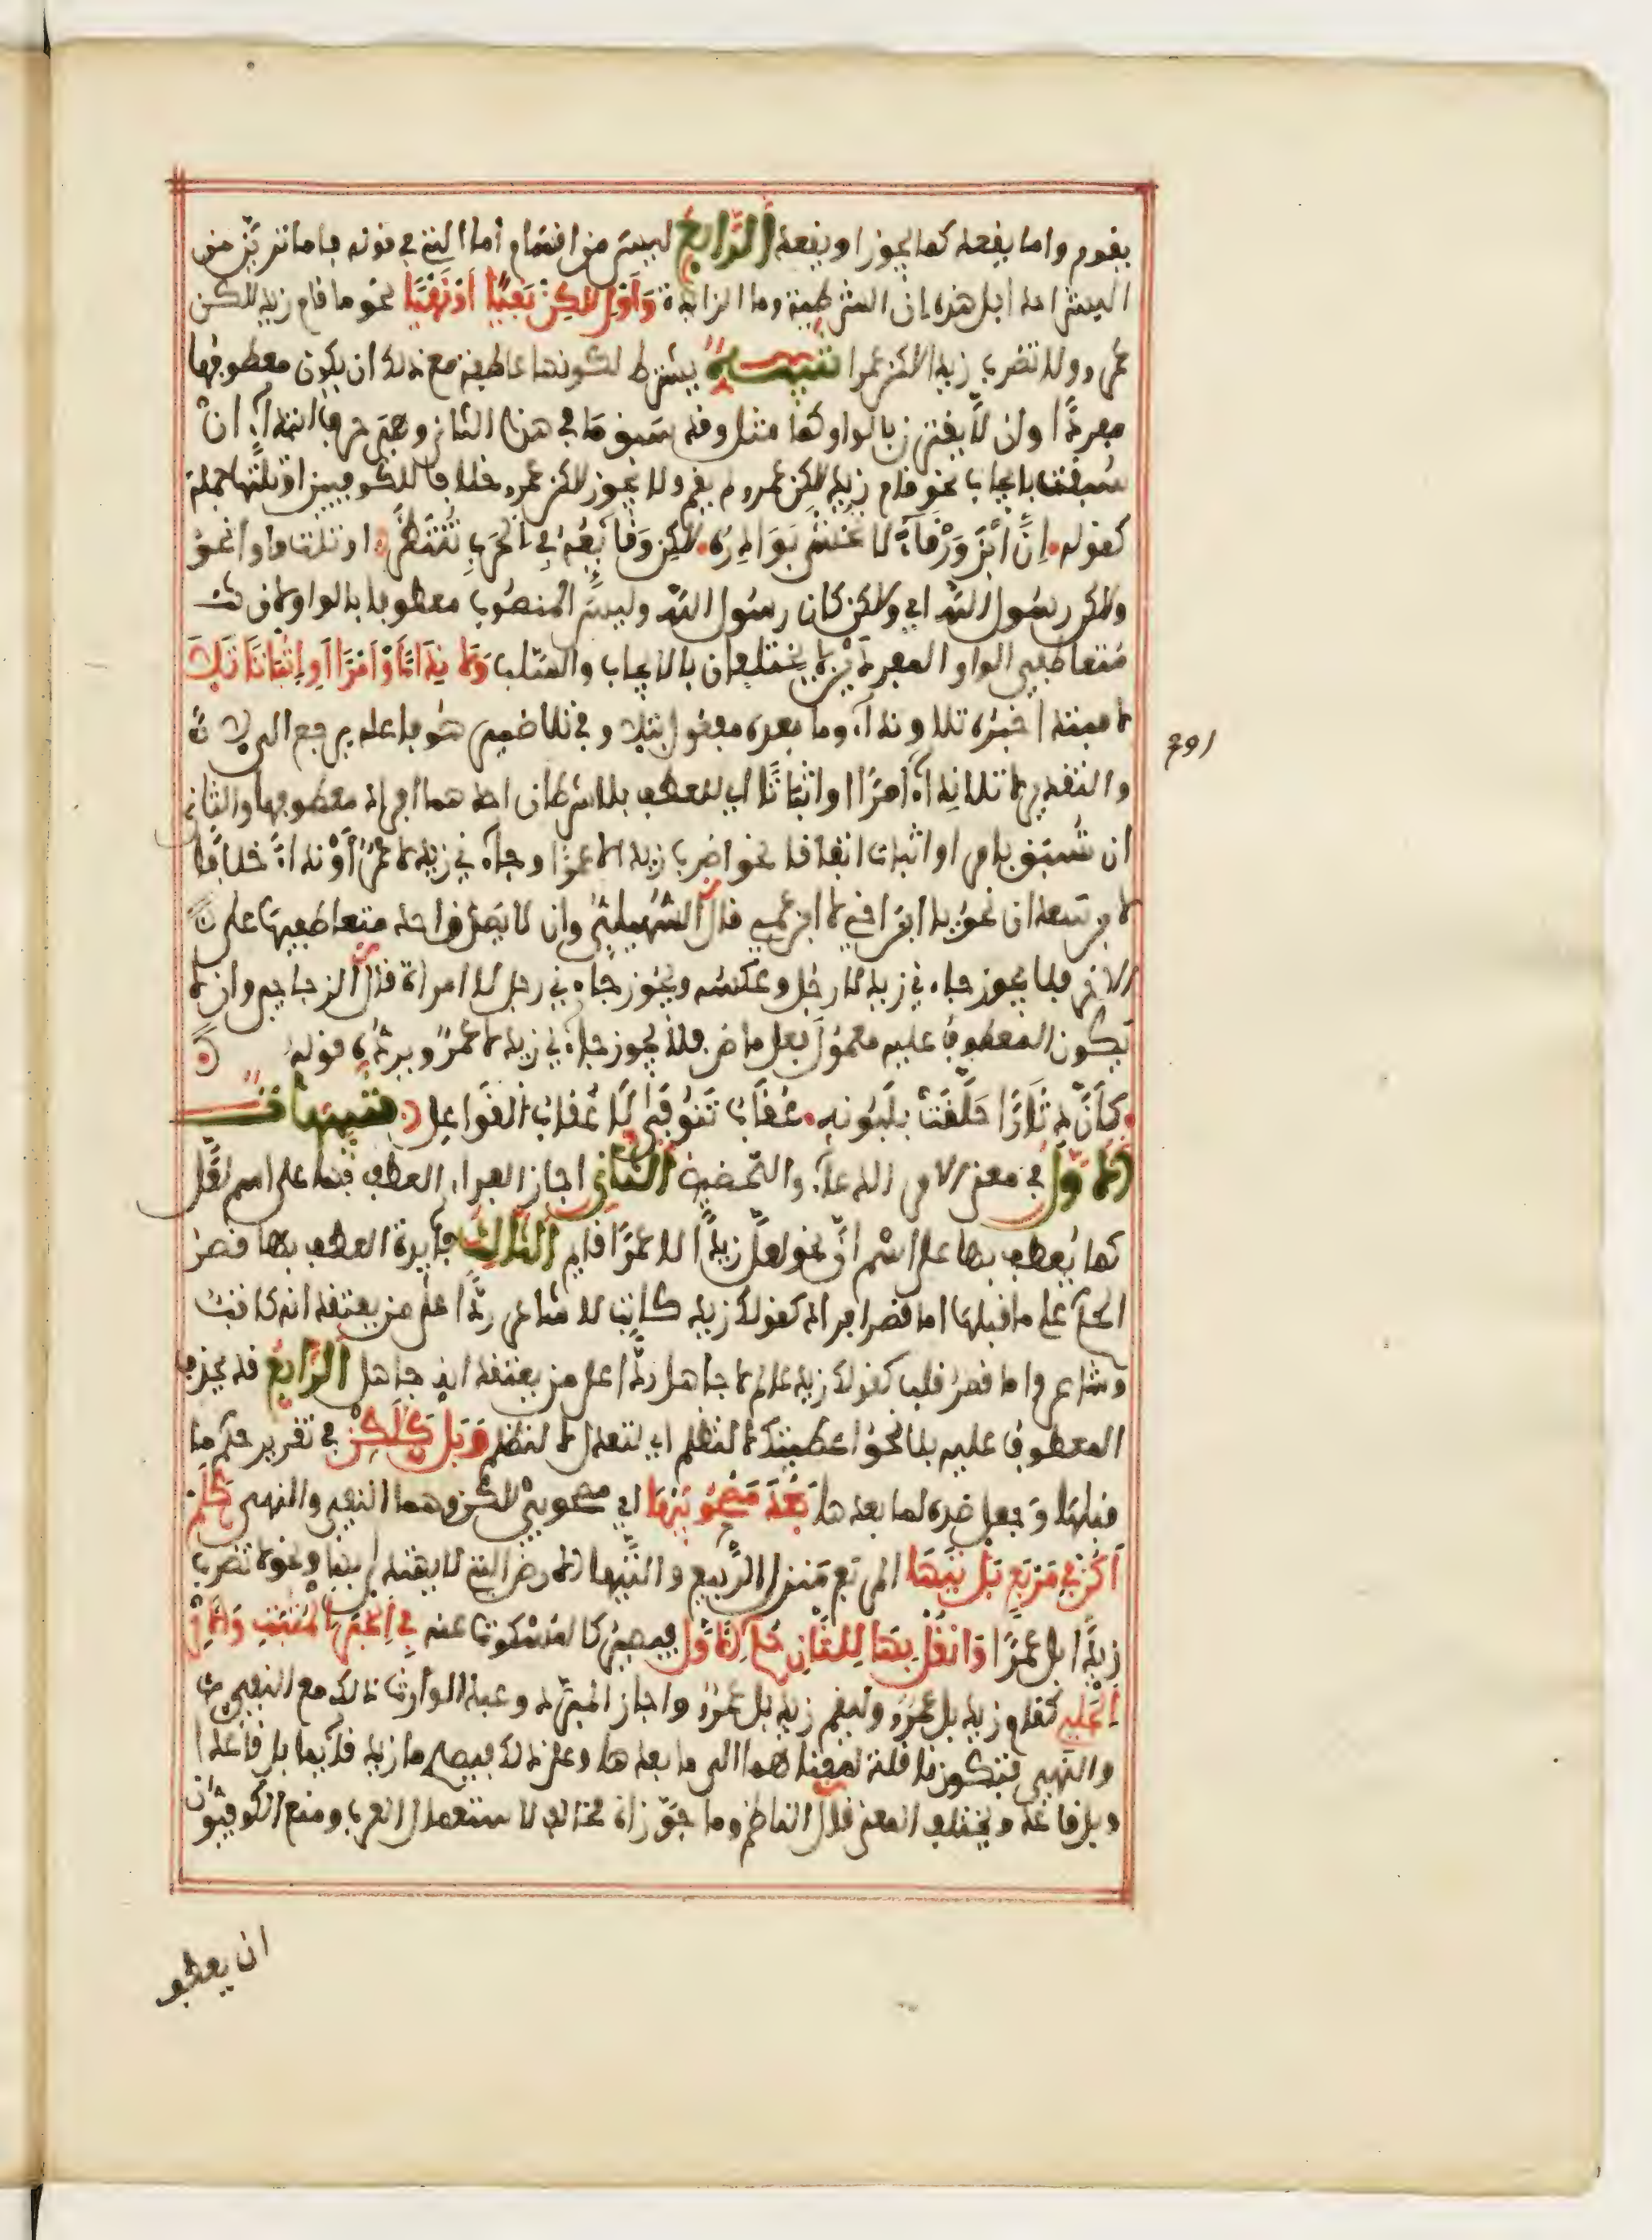 يقوم واما يقعد كما يجوز او يقعد الرابع ليس من اقسام اما التي في قوله فاما ترين من
البشر احدا بل هذه إن الشرطية وما الزائدة وَأَوْلِ لَكِنْ نَفْيًا اَوْ نَهْيًا نحو ما قام زيد لكن
عمرو ولا تضرب زيدا لاكن عمرا تنبيه يشترط لكونها عاطفة مع ذلك ان يكون معطوفها
مفردا وان لا يقترن بالواو كما مثل وقد سبق ما في هذا الثاني وهي حرف ابتداء ان
سبقت بايجاب نحو قام زيد لاكن عمرو لم يقم ولا يجوز لاكن عمرو خلافا للكوفيين او تلتها جملة
كقوله إِنَّ ابْنَ وَرْقَاءَ لا تُخْشَى بَوَادِرُهُ لَاكِنْ وَقَائِعُهُ فِي الْحَرْبِ تُنْتَظَرُ او تلت واوا نحو
ولاكن رسول الله اي ولاكن كان رسول الله وليس المنصوب معطوفا بالواو لان
متعاطفي الواو المفردين لا يختلفان بالايجاب والسلب وَلَا نِدَاءً أَوْ اَمْرًا أَوِ اِثْبَاتًا تَلَا
لا مبتدا خبره تلا ونداء وما بعده مفعول بتلا وفي تلا ضمير هو فاعله يرجع الى لا
والتقدير لا تلا نداء أو امرا او اثباتا اي للعطف بلا شرطان احدهما افراد معطوفها والثاني
ان تسبق بامر او اثبات اتفاقا نحو اضرب زيدا لا عمرا وجاءني زيد لا عمرو أو نداء خلافا
لابن سعدان نحو يا ابن اخي لا ابن عمي قال السهيلي وان لا يصدق احد متعاطفيها على
الاخر فلا يجوز جاءني زيد لا رجل وعكسه ويجوز جاءني رجل لا امراة قال الزجاجي وان لا
يكون المعطوف عليه معمول فعل ماض فلا يجوز جاءني زيد لا عمرو ويرده قوله
كَأَنَّ دِثَارًا حَلَّقَتْ بِلَبُونِهِ عُقَابُ تَنُوفَى لَا عُقَابُ القَوَاعِلِ تنبيهات
الاول في معنى الامر الدعاء والتحضيض الثاني اجاز الفراء العطف بها على اسم لعل
كما يُعطف بها على اسم انّ نحو لعل زيدا لا عمرا قايم الثالث فايدة العطف بها قصر
الحكم على ما قبلها اما قصر افراد كقولك زيد كاتب لا شاعر ردا على من يعتقد انه كاتب
وشاعر واما قصر قلب كقولك زيد عالم لا جاهل ردا على من يعتقد انه جاهل الرابع قد يحذف
المعطوف عليه بلا نحو اعطيتك لا لتظلم اي لتعدل لا لتظلم وَبَلْ كَلَكِنْ في تقرير حكم ما
قبلها وجعل ضده لما بعدها بَعْدَ مَصْحُوبَيْهَا اي مصحوبي لاكن وهما النفي والنهي كَلَمْ
اَكُنْ فِي مَرْبَعٍ بَلْ تَيْهَا المربع منزل الربيع والتيها الارض التي لا يهتدى بها ونحو لا تضرب
زيدا بل عمرا وَانْقُلْ بِهَا لِلثَّانِ حُكْمَ الَاوَّلِ فيصير كالمسكوت عنه فِي الْخَبَرِ الْمُثْبَتِ وَالامْرِ
الْجَلِي كقام زيد بل عمرو وليقم زيد بل عمرو واجاز المبرد وعبد الوارث ذلك مع النفي
والنهي فتكون ناقلة لمعناهما الى ما بعدها وعلى ذلك فيصح ما زيد قايما بل قاعدا
وبل قاعد ويختلف المعنى قال الناظم وما جوزاه مخالف لاستعمال العرب ومنع الكوفيون
ان يعطف